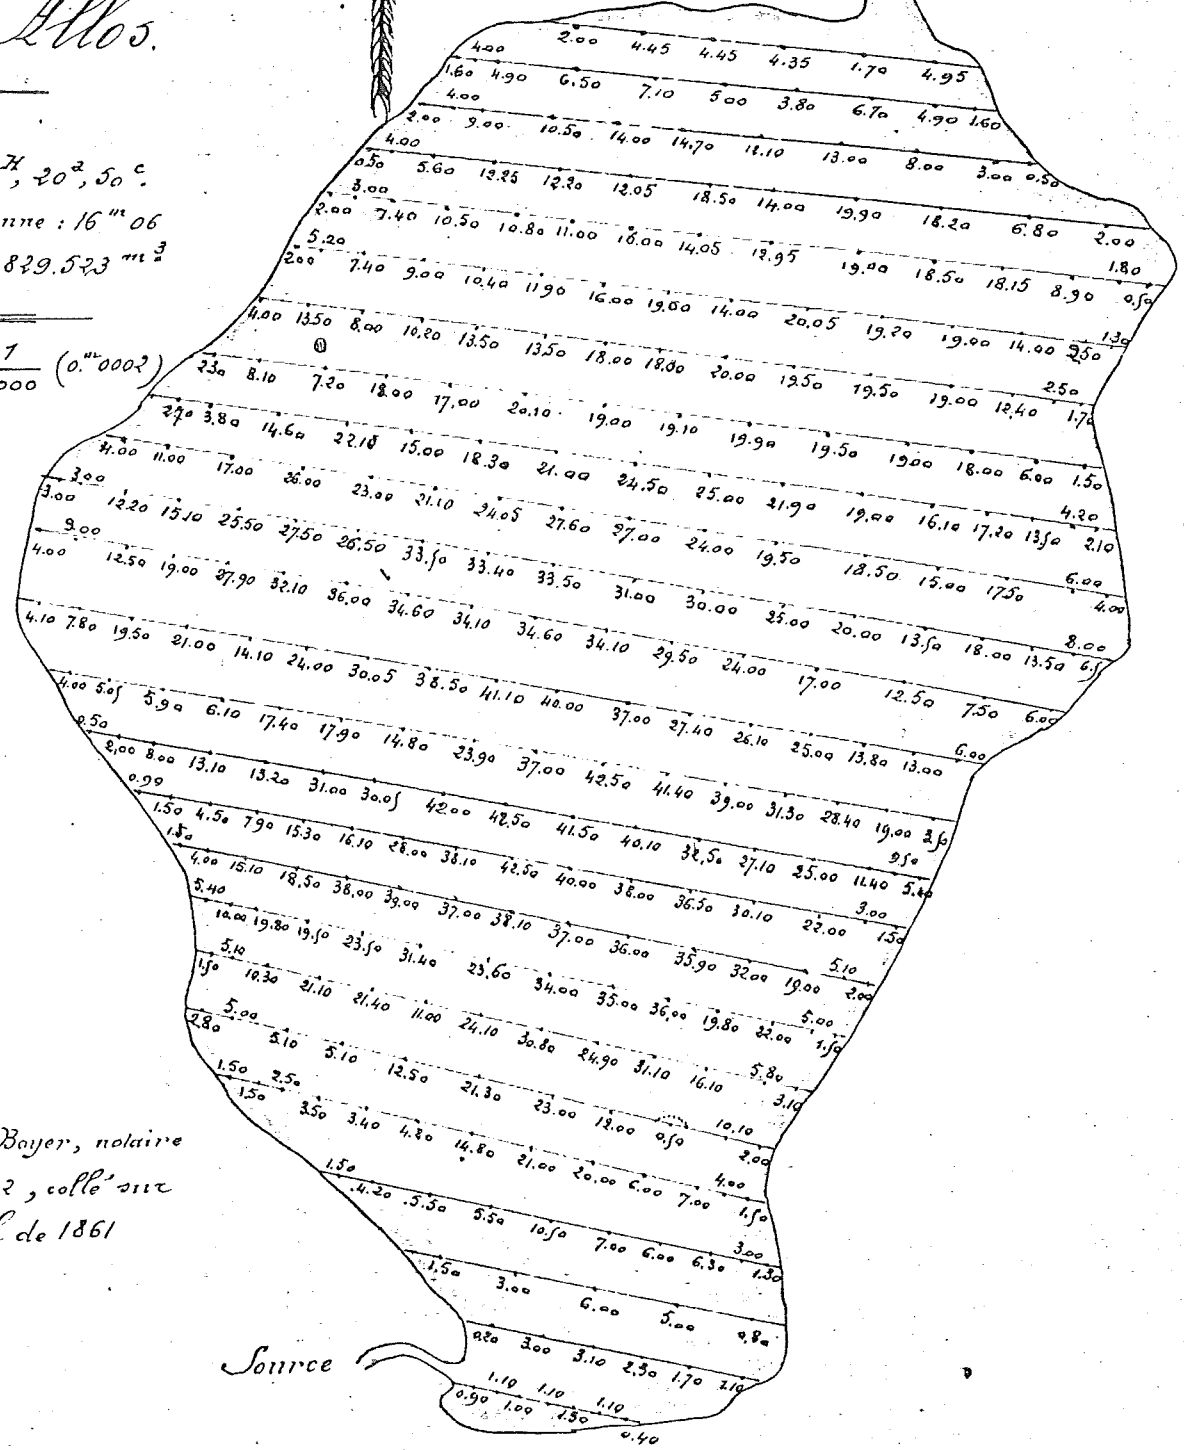 Allos.
H, 20ᵃ, 50ᶜ.
nne : 16ᵐ 06
829.523 ᵐ³
1
000 (0.ᵐ0002)
Boyer, notaire
2, collé sur
de 1861
2.00 4.45 4.45 4.35 1.70 4.95
4.00
1.60 4.90 6.50 7.10 5.00 3.80 6.70 4.90 1.60
4.00
2.00 9.00 10.50 14.00 14.70 12.10 13.00 8.00 3.00 0.50
4.00
0.50 5.60 12.25 12.20 12.05 18.50 14.00 19.90 18.20 6.80 2.00
3.00 1.80
2.00 7.40 10.50 10.80 11.00 16.00 14.05 12.95 19.00 18.50 18.15 8.90 0.50
5.20 1.30
2.00 7.40 9.00 10.40 11.90 16.00 19.60 14.00 20.05 19.20 19.00 14.00
4.00 13.50 8.00 10.20 13.50 13.50 18.00 18.00 20.00 19.50 19.50 19.00 12.40 1.70
2.50
2.30 8.10 7.20 18.00 17.00 20.10 19.00 19.10 19.90 19.50 19.00 18.00 6.00 1.50
2.70 3.80 14.60 22.10 15.00 18.30 21.00 24.50 25.00 21.90 19.00 16.10 17.20 13.50 2.10
4.20
4.00 11.00 17.00 26.00 23.00 21.10 24.05 27.60 27.00 24.00 19.50 18.50 15.00 17.50 4.00
3.00 6.00
3.00 12.20 15.10 25.50 27.50 26.50 33.50 33.40 33.50 31.00 30.00 25.00 20.00 13.50 18.00 13.50 6.5
9.00 8.00
4.00 12.50 19.00 27.90 32.10 36.00 34.60 34.10 34.60 34.10 29.50 24.00 17.00 12.50 7.50 6.00
4.10 7.80 19.50 21.00 14.10 24.00 30.05 38.50 41.10 40.00 37.00 27.40 26.10 25.00 13.80 13.00 6.00
4.00 5.05 5.90 6.10 17.40 17.90 14.80 23.90 37.00 42.50 41.40 39.00 31.30 28.40 19.00 3.50
0.50 9.50
2.00 8.00 13.10 13.20 31.00 30.05 42.00 42.50 41.50 40.10 32.50 27.10 25.00 11.40 5.40
0.90 3.00
1.50 4.50 7.90 15.30 16.10 28.00 38.10 42.50 40.00 38.00 36.50 30.10 22.00 1.50
1.50 5.10
4.00 15.10 18.50 38.00 39.00 37.00 38.10 37.00 36.00 35.90 32.00 19.00 2.00
5.40 5.00
10.00 19.80 19.50 23.50 31.40 23.60 34.00 35.00 36.00 19.80 22.00 1.50
5.10 5.80
1.50 10.30 21.10 21.40 11.00 24.10 30.80 24.90 31.10 16.10 3.10
5.00 10.10
2.80 5.10 5.10 12.50 21.30 23.00 12.00 0.50 2.00
1.50 2.50 4.00
1.50 3.50 3.40 4.20 14.80 21.00 20.00 6.00 7.00 1.50
1.50 3.00
4.20 5.50 5.50 10.50 7.00 6.00 6.30 1.30
1.50 3.00 6.00 5.00 0.80
0.20 3.00 3.10 2.50 1.70 2.10
Source
1.10 1.10 1.10
0.90 1.00 1.50 0.40